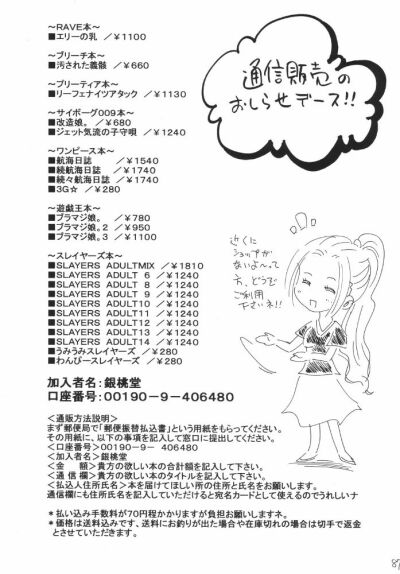 ～RAVE本～
■エリーの乳 ／￥1100
～ブリーチ本～
■汚された義骸 ／￥660
～プリーティア本～
■リーフェナイツアタック ／￥1130
～サイボーグ009本～
■改造娘。 ／￥680
■ジェット気流の子守唄 ／￥1240
～ワンピース本～
■航海日誌 ／￥1540
■続航海日誌 ／￥1740
■続々航海日誌 ／￥1740
■3G☆ ／￥280
～遊戯王本～
■ブラマジ娘。 ／￥780
■ブラマジ娘。2 ／￥950
■ブラマジ娘。3 ／￥1100
～スレイヤーズ本～
■SLAYERS ADULTMIX ／￥1810
■SLAYERS ADULT 6 ／￥1240
■SLAYERS ADULT 8 ／￥1240
■SLAYERS ADULT 9 ／￥1240
■SLAYERS ADULT10 ／￥1240
■SLAYERS ADULT11 ／￥1240
■SLAYERS ADULT12 ／￥1240
■SLAYERS ADULT13 ／￥1240
■SLAYERS ADULT14 ／￥1240
■うみうみスレイヤーズ ／￥280
■わんぴースレイヤーズ ／￥280
通信販売の
おしらせデース!!
近くに
ショップが
ないよ～って
方、どうぞ
ご利用
下さいネ!!
加入者名：銀桃堂
口座番号：00190－9－406480
＜通販方法説明＞
まず郵便局で「郵便振替払込書」という用紙をもらってください。
その用紙に、以下の事項を記入して窓口に提出してください。
＜口座番号＞00190－9－ 406480
＜加入者名＞銀桃堂
＜金 額＞貴方の欲しい本の合計額を記入して下さい。
＜通 信 欄＞貴方の欲しい本のタイトルを記入して下さい。
＜払込人住所氏名＞本を届けてほしい所の住所と氏名をお願いします。
通信欄にも住所氏名を記入していただけると宛名カードとして使えるのでうれしいナ
＊払い込み手数料が70円程かかりますが負担お願いしますネ。
＊価格は送料込みです、送料にお釣りが出た場合や在庫切れの場合は切手で返金
とさせていただきます。
87